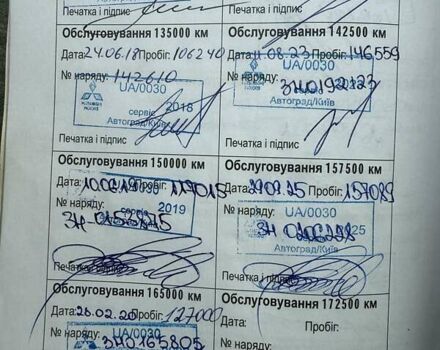 Печатка і підпис
Печатка і підпис
Обслуговування 135000 км
Дата: 24.06.18 Пробіг: 106240
№ наряду: 142610
UA/0030
MITSUBISHI MOTORS
сервіс 2018
Автоград/Київ
Печатка і підпис
Обслуговування 142500 км
11.08.23 Пробіг: 146559
№ наряду:
UA/0030
ЗН0192123
Автоград/Київ
Печатка і підпис
Обслуговування 150000 км
Дата: 10.06.19 Пробіг: 117015
№ наряду:
UA/0030
2019
Автоград/Київ
Печатка і підпис
Обслуговування 157500 км
Дата: 29.09.25 Пробіг: 157089
№ наряду:
UA/0030
ЗН 0206298
25
Автоград/Київ
Печатка і підпис
Обслуговування 165000 км
Дата: 28.02.20 127000
№ наряду:
UA/0030
ЗН0165805
Обслуговування 172500 км
Дата: Пробіг:
№ наряду: